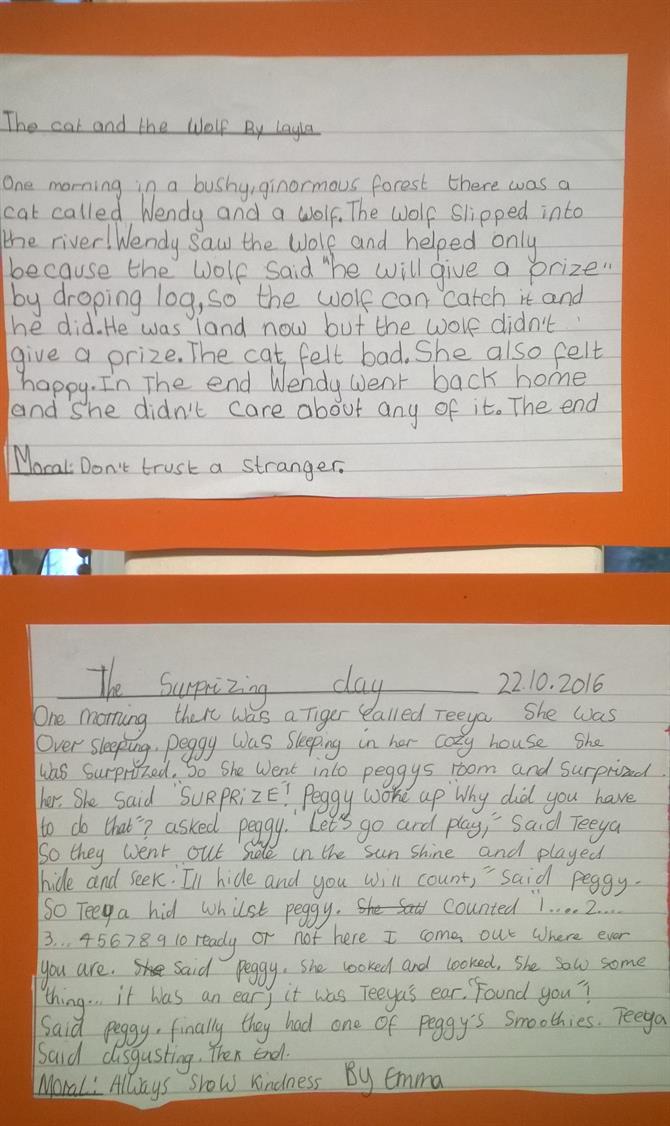 The cat and the Wolf By Layla
One morning in a bushy, ginormous forest there was a
cat called Wendy and a Wolf. The Wolf Slipped into
the river! Wendy Saw the Wolf and helped only
because the Wolf Said "he will give a prize"
by droping log, So the wolf can catch it and
he did. He was land now but the wolf didn't
give a prize. The cat felt bad. She also felt
happy. In The end Wendy went back home
and She didn't care about any of it. The end
Moral: Don't trust a stranger.
The Surprizing day 22.10.2016
One morning there was a Tiger called Teeya She was
Over sleeping. Peggy was Sleeping in her cozy house She
was Surprized. So She went into peggys room and Surprized
her. She Said "SURPRIZE"! Peggy woke up "Why did you have
to do that"? asked peggy. "Let's go and play," Said Teeya
So they went out side in the Sun Shine and played
hide and seek. "I'll hide and you will count," said peggy.
So Teeya hid whilst peggy. She Saw counted "1....2....
3... 4 5 6 7 8 9 10 ready or not here I come, out where ever
you are. She said peggy. She looked and looked. She saw some
thing... it was an ear; it was Teeya's ear. "Found you"!
Said peggy. finally they had one of peggy's Smoothies. Teeya
Said disgusting. The End.
Moral: Always show kindness By Emma